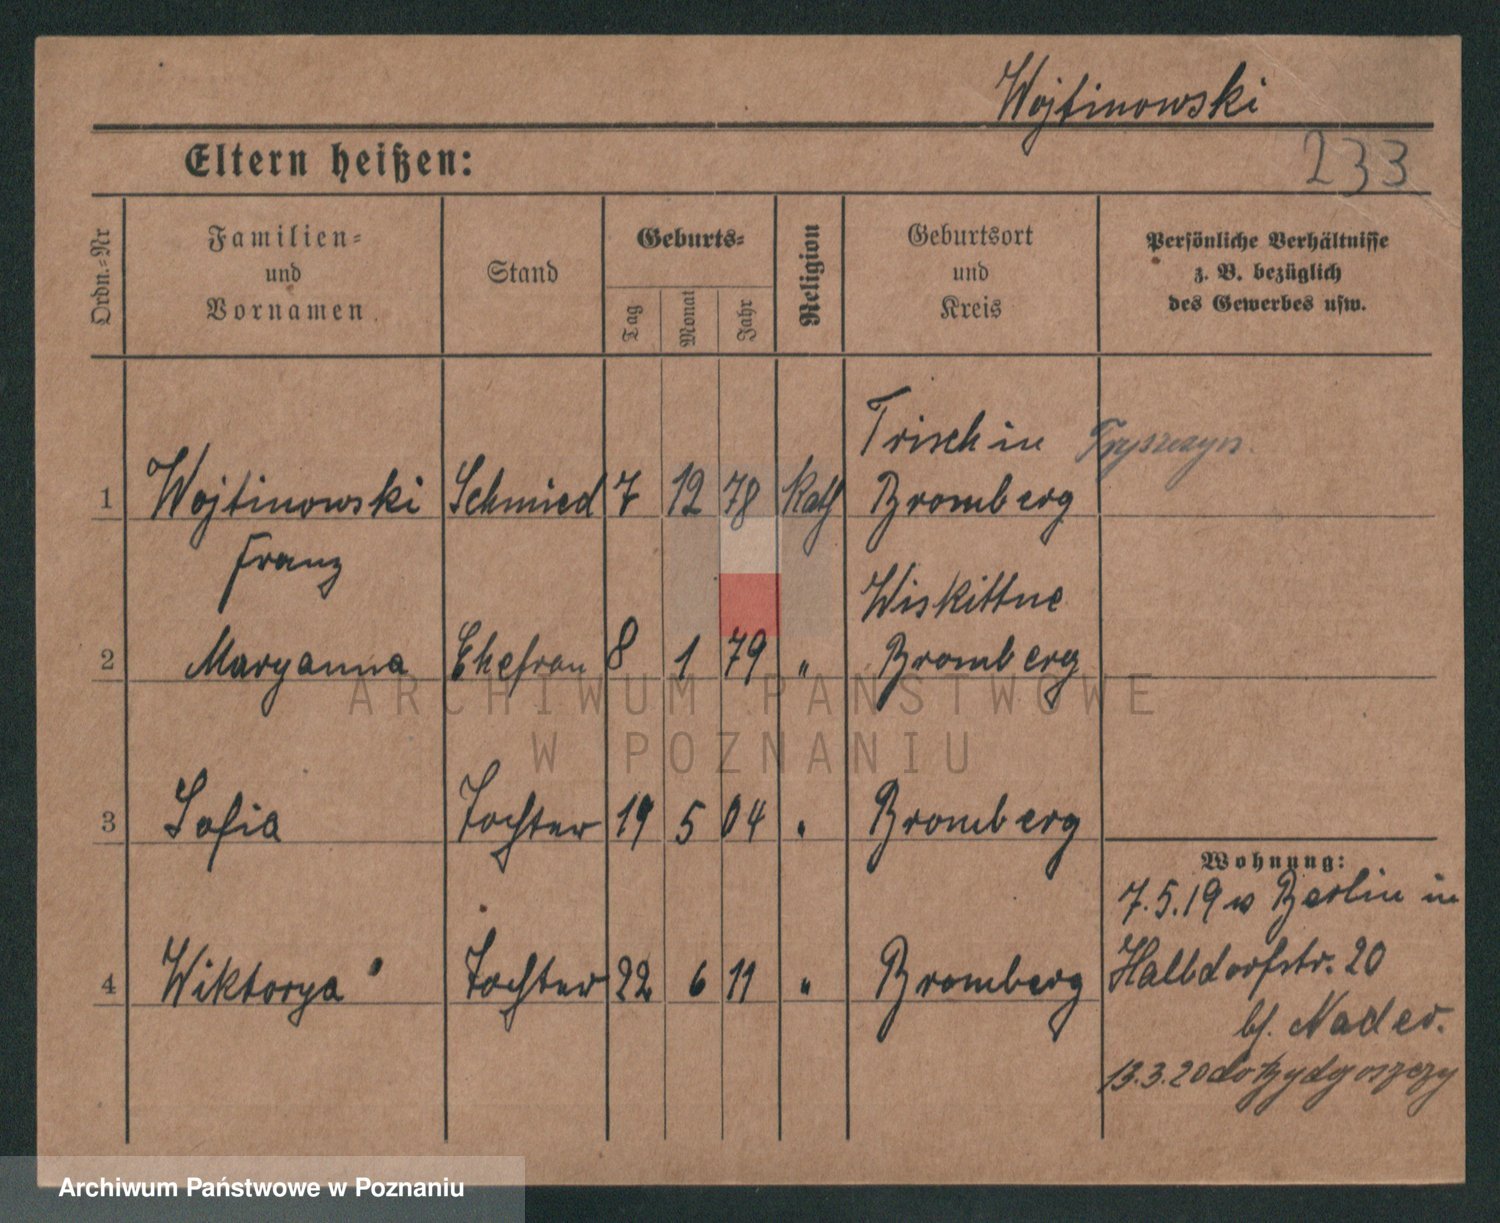 Wojtinowski
233
Eltern heißen:
Ordn.=Nr
Familien=
und
Vornamen
Stand
Geburts=
Tag
Monat
Jahr
Religion
Geburtsort
und
Kreis
Persönliche Verhältnisse
z. B. bezüglich
des Gewerbes usw.
Trischin Tryszczyn
1 Wojtinowski Schmied 7 12 78 Kath Bromberg
Franz
Wiskittne
2 Maryanna Ehefrau 8 1 79 " Bromberg
3 Sofia Tochter 19 5 04 " Bromberg
4 Wiktorya Tochter 22 6 11 " Bromberg
Wohnung:
7.5.19 Berlin in
Halbdorfstr. 20
bf. Nader.
13.3.20 do Bydgoszczy
ARCHIWUM PAŃSTWOWE
W POZNANIU
Archiwum Państwowe w Poznaniu